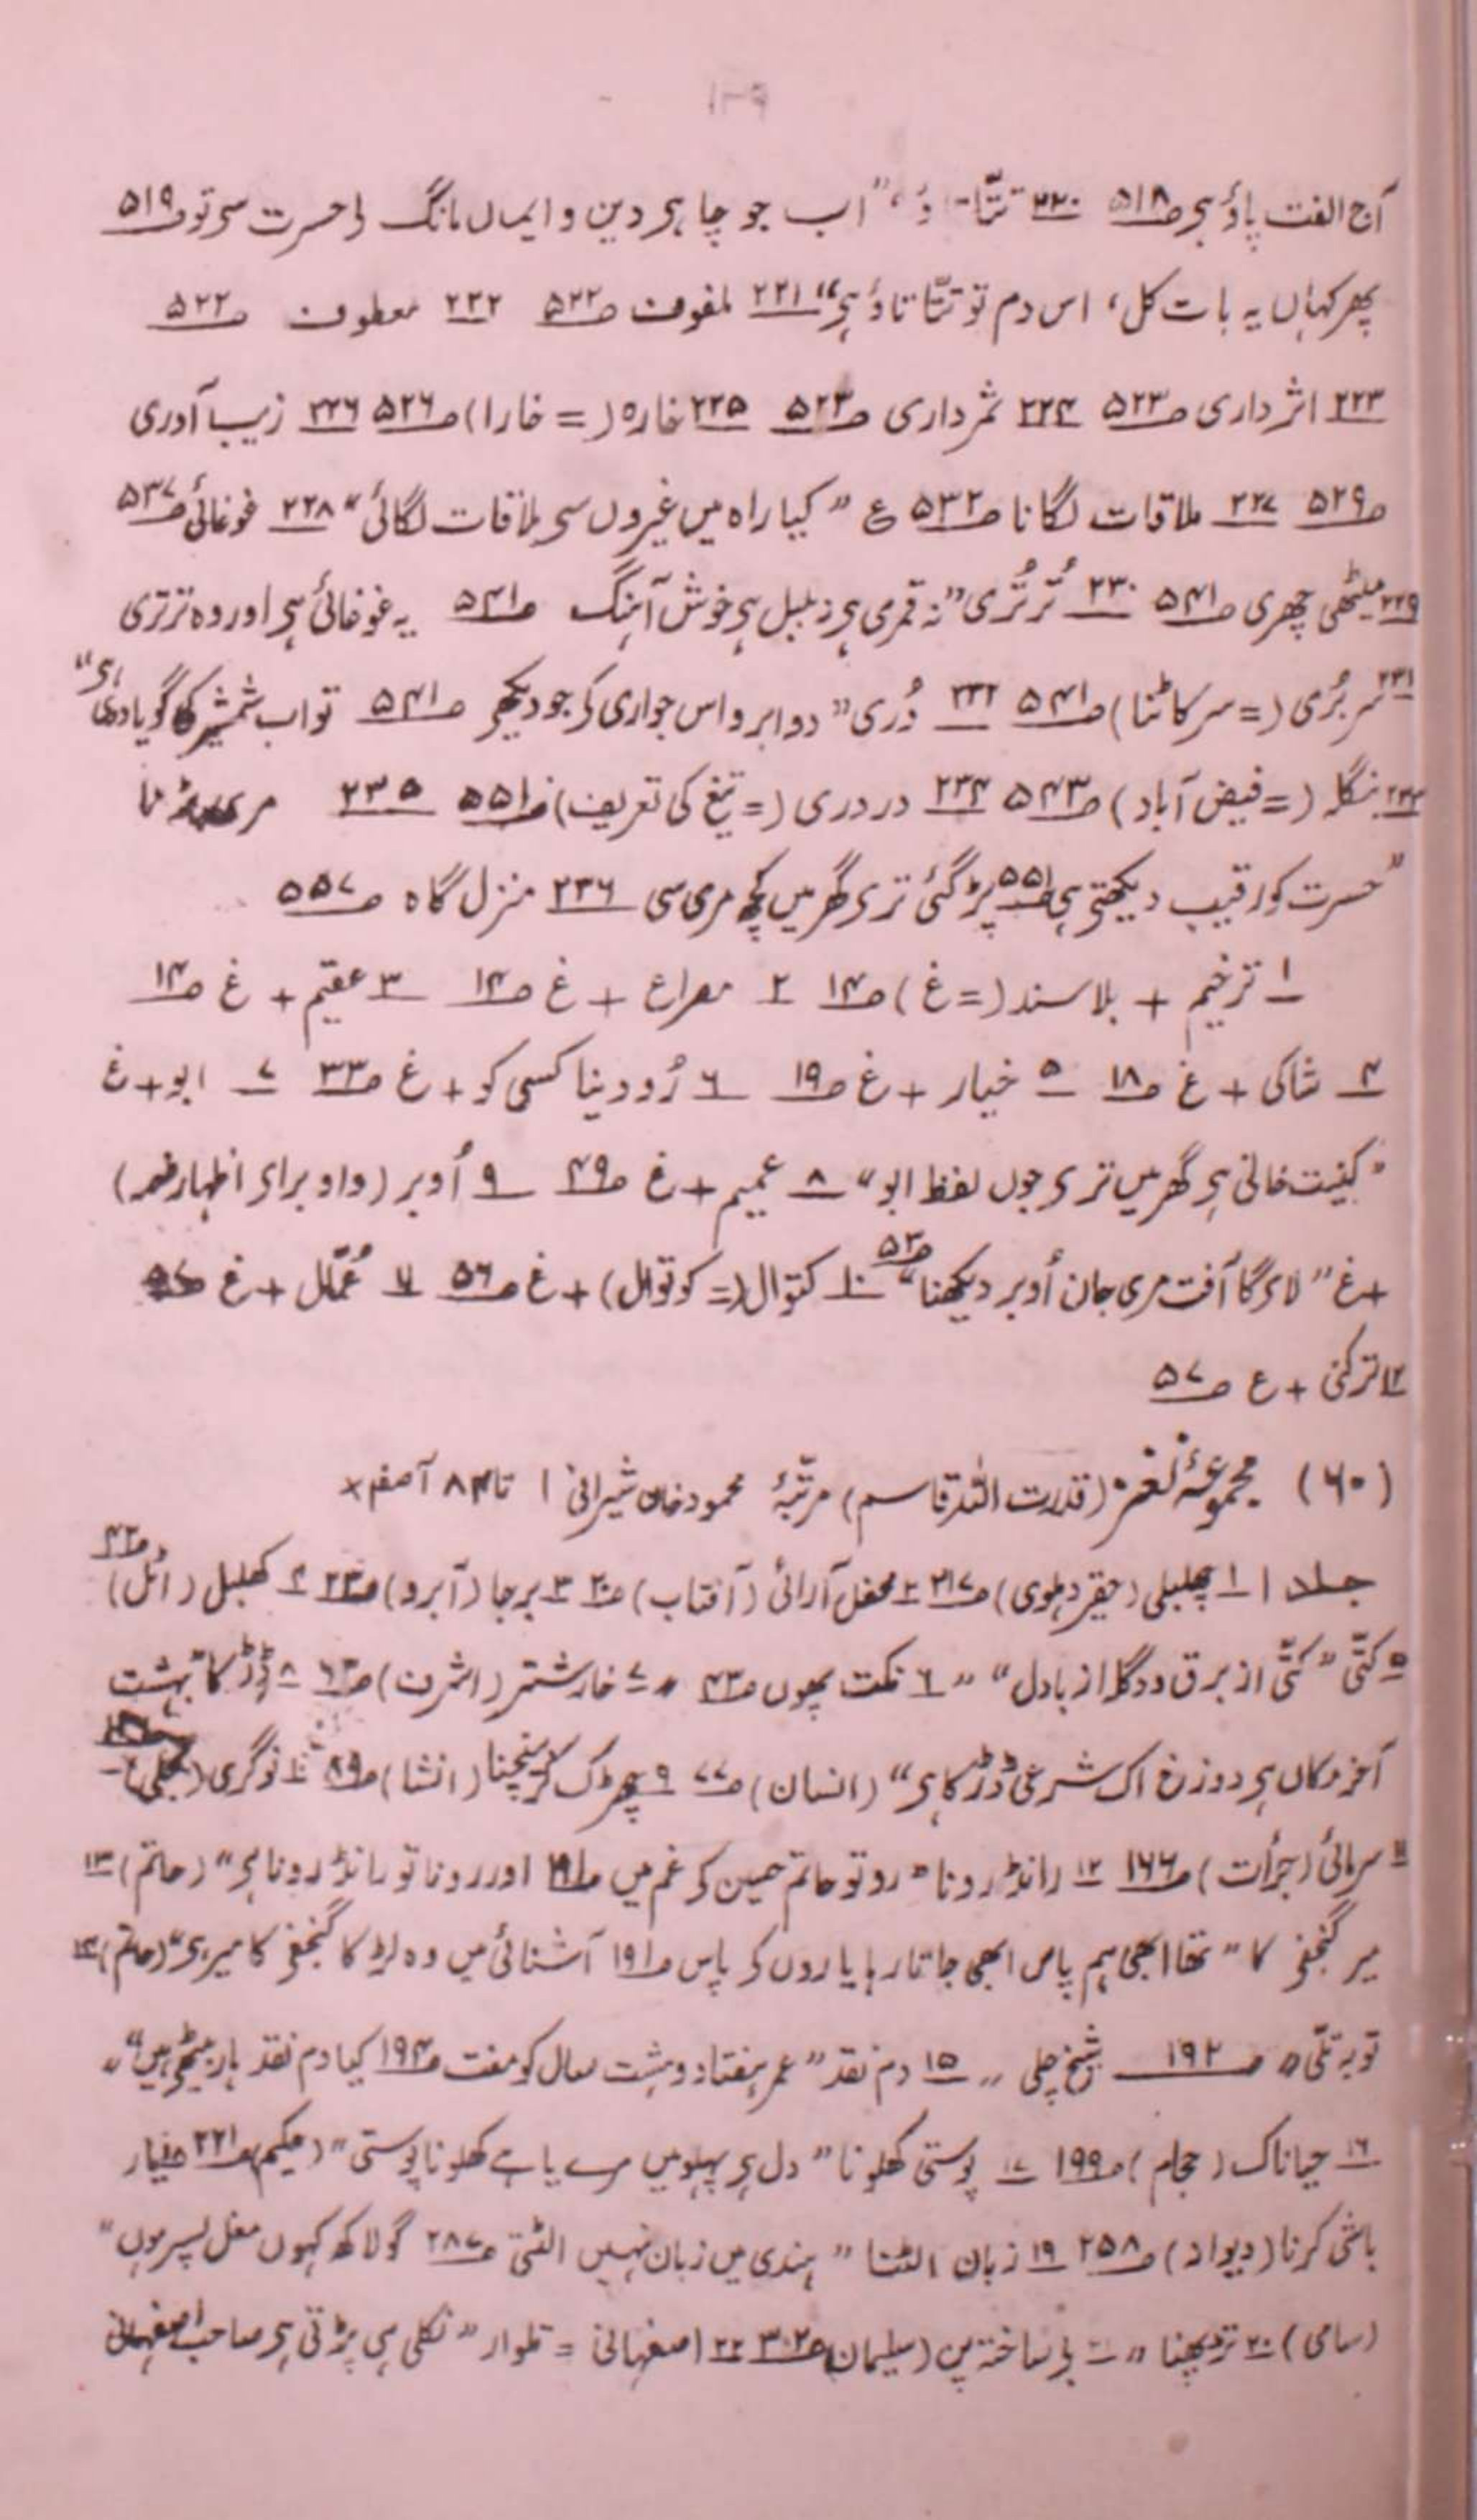 آج الفت پاؤ ہی ص۵۱۸ ۲۲۰ تتّا تاؤ، "اب جو چاہی دین و ایماں مانگ لی حسرت سی تو ص۵۱۹
پھر کہاں یہ بات کل، اس دم تو تتّا تاؤ ہی" ۲۲۱ لمفوف ص۵۲۲ ۲۲۲ معطوف ص۵۲۲
۲۲۳ اثر داری ص۵۲۳ ۲۲۴ ثمر داری ص۵۲۳ ۲۲۵ خارہ (= خارا) ص۵۲۶ ۲۲۶ زیب آوری
ص۵۲۹ ۲۲۷ ملاقات لگانا ص۵۳۲ ع "کیا راہ میں غیروں سی ملاقات لگائی" ۲۲۸ غوغائی ص۵۳۷
۲۲۹ میٹھی چھری ص۵۴۱ ۲۳۰ تُرتُری "نہ قمری ہی نہ بلبل ہی خوش آہنگ ص۵۴۱ یہ غوغائی ہی اور وہ ترتری
۲۳۱ سر بُری (= سر کاٹنا) ص۵۴۱ ۲۳۲ دُری "دو ابرو اس جواری کی جو دیکھی ص۵۴۱ تو اب شمشیر کا گویا دری ہی"
۲۳۳ بنگلہ (= فیض آباد) ص۵۴۳ ۲۳۴ در دری (= تیغ کی تعریف) ص۵۵۱ ۲۳۵ مری پڑنا
"حسرت کو رقیب دیکھتی ہی ص۵۵۱ پڑ گئی تری گھر میں کچھ مری سی ۲۳۶ منزل گاہ ص۵۵۷
۱ ترخیم + بلا سند (= غ) ص۱۴ ۲ مصراع + غ ص۱۴ ۳ عقیم + غ ص۱۴
۴ شاکی + غ ص۱۸ ۵ خیار + غ ص۱۹ ۶ رُو دینا کسی کو + غ ص۳۳ ۷ ابو + غ
"کنیت خانی ہی گھر میں تری جوں لفظ ابو" ۸ عمیم + غ ص۴۹ ۹ اُوبر (واو برای اظہار ضمہ)
+ غ "لای گا آفت مری جان اُوبر دیکھنا" ص۵۳ ۱۰ کتوال (= کوتوال) + غ ص۵۶ ۱۱ عُمّال + غ ص۵۷
۱۲ ترکنی + ع ص۵۷
(۶۰) مجموعۂ نغز (قدرت اللہ قاسم) مرتّبۂ محمود خاں شیرانی ۱ تا ۸۴ آصفہ ×
جلد ۱ ۱ چلبلی (حقیر دہلوی) ص۳۱۷ ۲ محفل آرائی (آفتاب) ص۲۰ ۳ برجا (آبرو) ص۲۳ ۴ کھلبل (اٹل) ص۴۲
۵ کتّی "کتّی از برق و دگلہ از بادل" " ۶ نکت بچوں ص۴۳ " ۷ خار شتر (اشرف) ص۶۳ ۸ ڈرڑ کا "بہشت
آخر مکاں ہی دوزخ اک شرعی ڈرڑکا ہی" (انسان) ص۷۷ ۹ چھڑک کر بیچنا (انشا) ص۸۹ ۱۰ نوگری (تجلی)
۱۱ سرمائی (جرأت) ص۱۶۶ ۱۲ رانڈ رونا "رو تو حاتم حسین کی غم میں ص۱۹۱ اور رونا تو رانڈ رونا ہی" (حاتم) ۱۳
میر گنجفی کا "تھا ابھی ہم پاس ابھی جاتا رہا یاروں کی پاس ص۱۹۱ آشنائی میں وہ لڑکا گنجفی کا میر ہی" (حاتم) ۱۴
توبہ تلّی " ص۱۹۲ شیخ چلی " ۱۵ دم نقد "عمر ہفتاد و ہشت سال کو مفت ص۱۹۴ کیا دم نقد ہار بیٹھی ہیں" "
۱۶ حیا ناک (حجام) ص۱۹۹ ۱۷ پوستی کھلونا "دل ہی پہلو میں مرے یا ہے کھلونا پوستی" (حکیم) ص۲۲۱ ۱۸ نیار
باشی کرنا (دیوانہ) ص۲۵۸ ۱۹ زبان الٹنا "ہندی میں زبان نہیں الٹتی ص۲۸۷ گو لاکھ کہوں مغل پسر ہوں"
(سامی) ۲۰ " ۲۱ بی ساختہ پن (سلیمان) ص۳۰۲ ۲۲ اصفہانی = تلوار "نکلی ہی پڑتی ہی صاحب اصفہانی